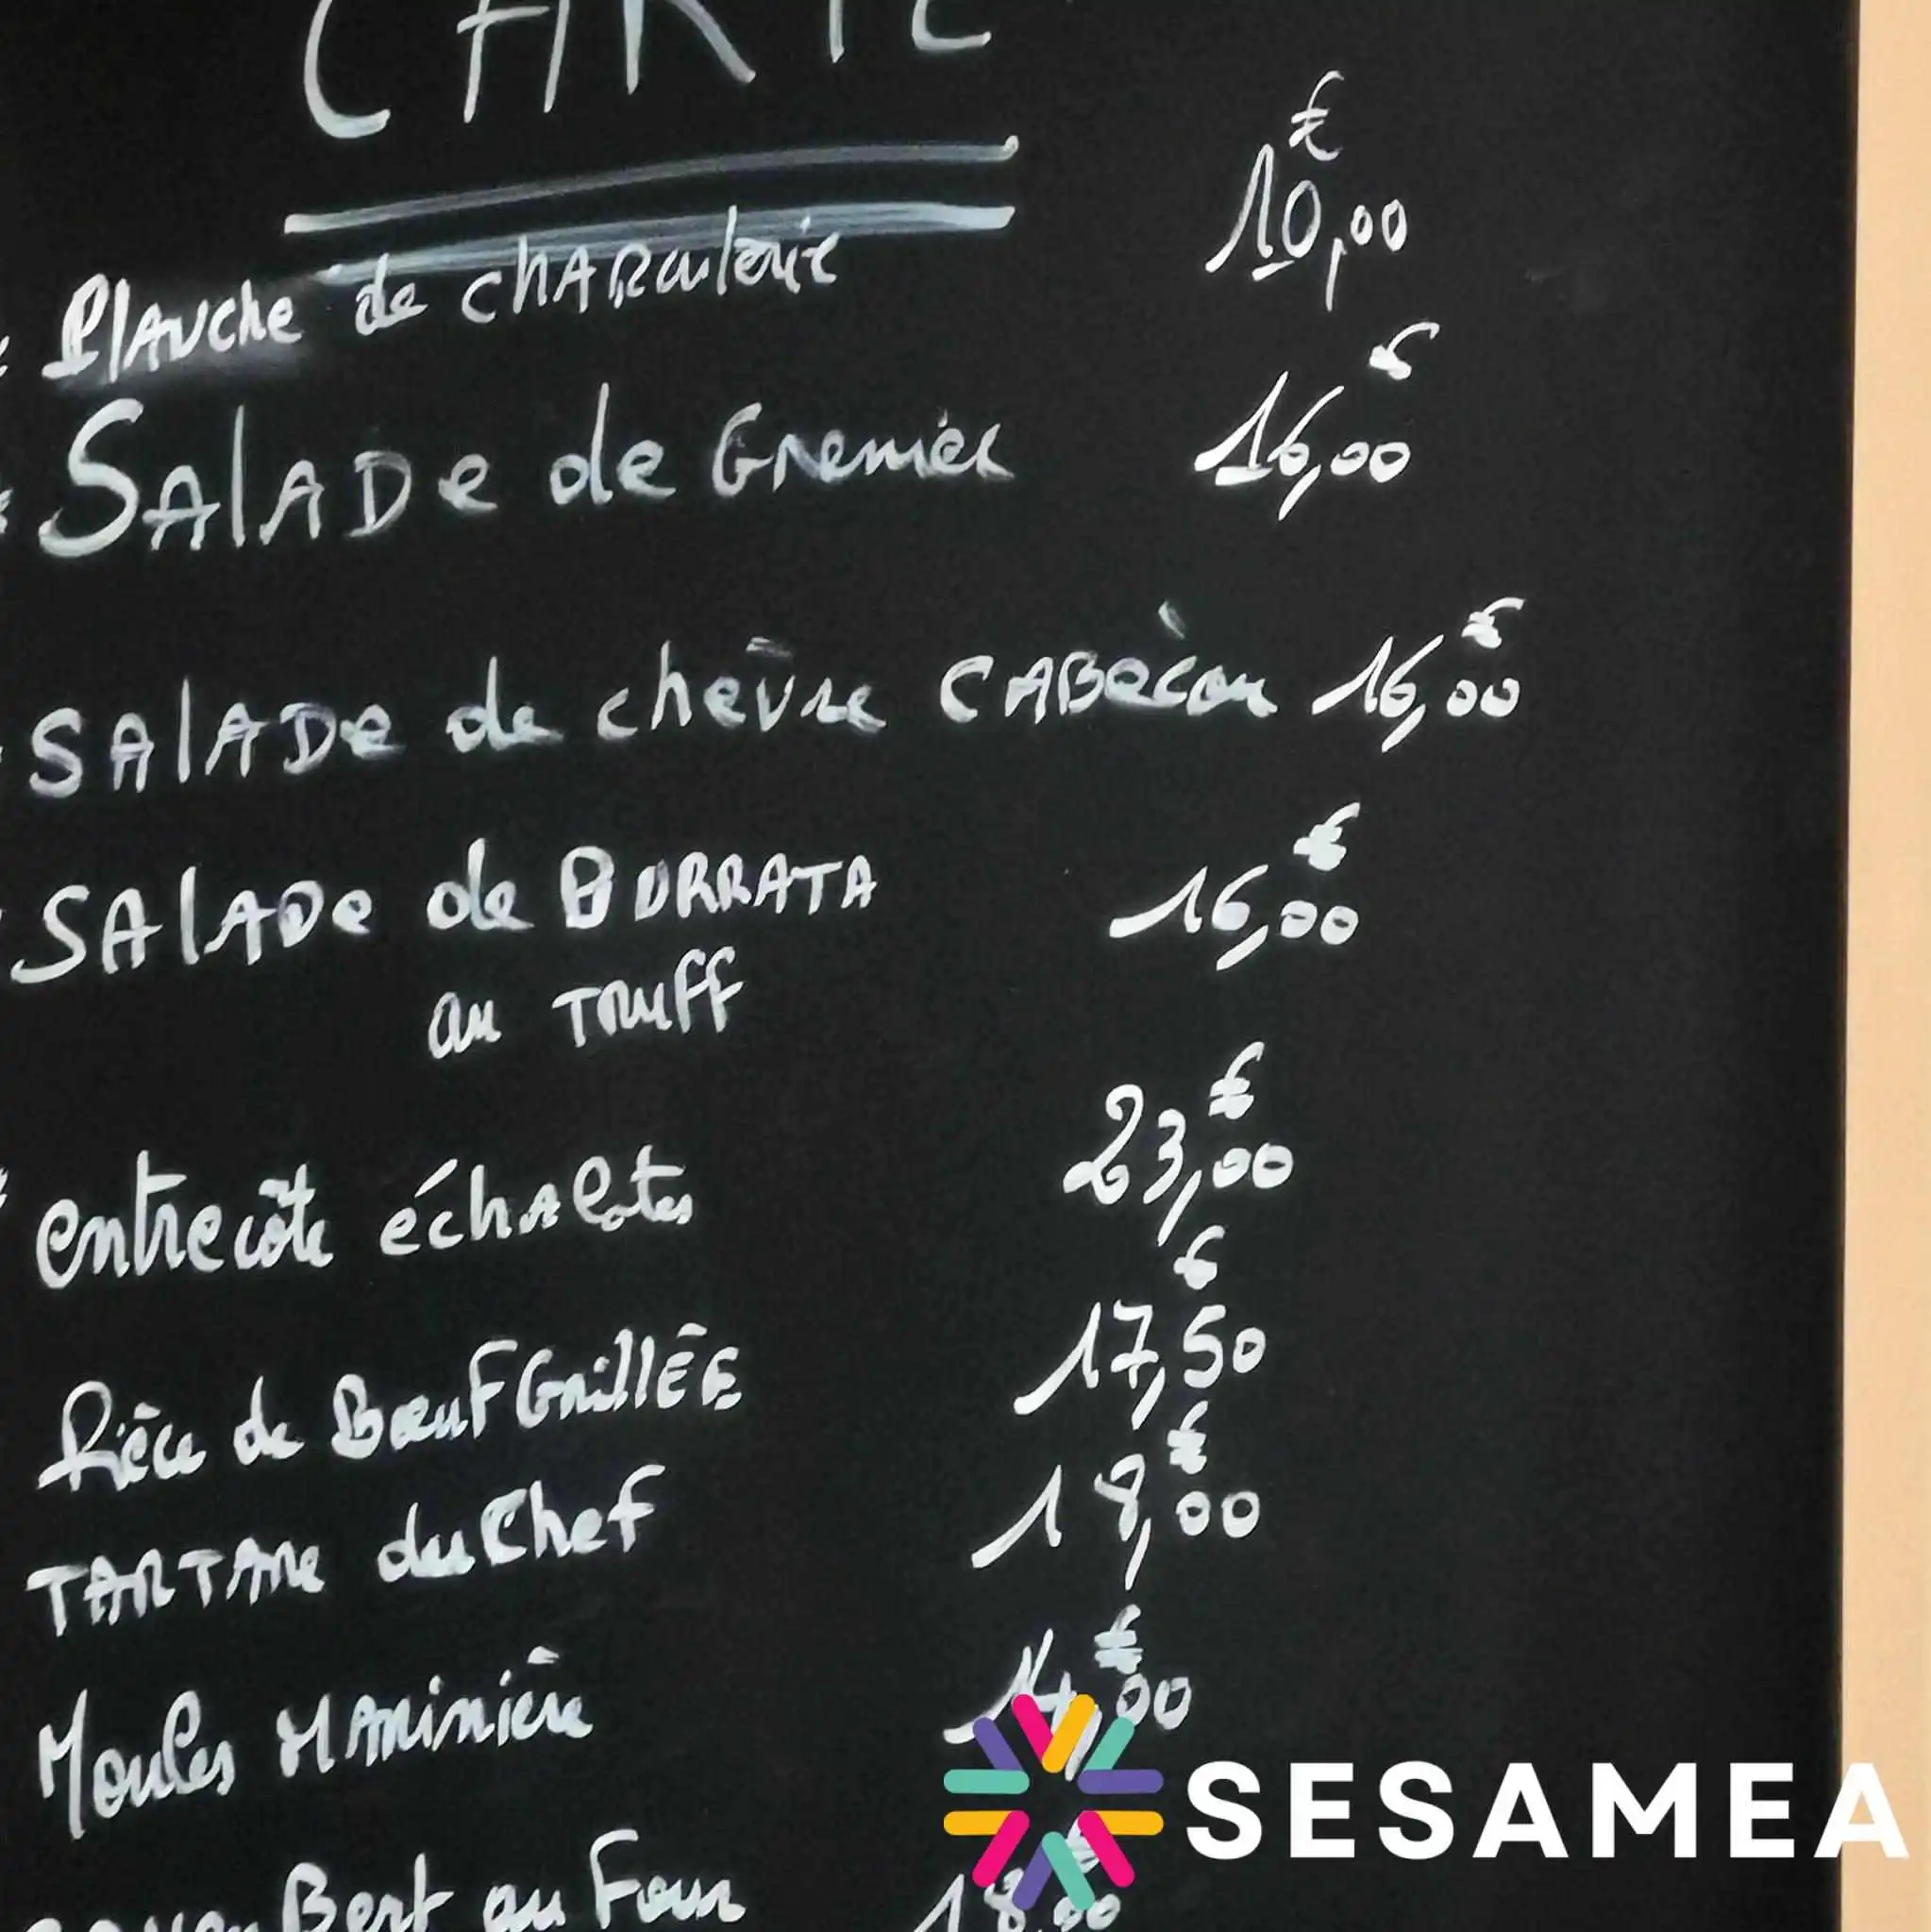 CARTE
Planche de charcuterie 10,00 €
Salade de Gremier 16,00 €
SALADE de chèvre CABècou 16,00 €
SALADe de BURRATA 16,00 €
au TRUFF
entrecôte échalotes 23,00 €
Pièce de Bœuf GrillÉE 17,50 €
TARTARe du Chef 18,00 €
Moules Marinière 14,00 €
Bert au Four 18,00
SESAMEA